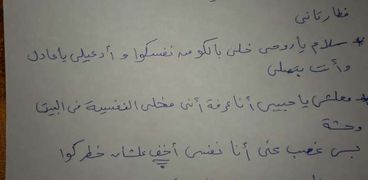 فطار تانى
* سلام يا روحى خلى بالكو من نفسكوا و أدعيلى يا عادل
وأنت بتصلى
* معلش يا حبيبى أنا عارفة أنى مخلى النفسية فى البيت
وحشة
بس غصب عنى أنا نفسى أخف علشان خطركوا